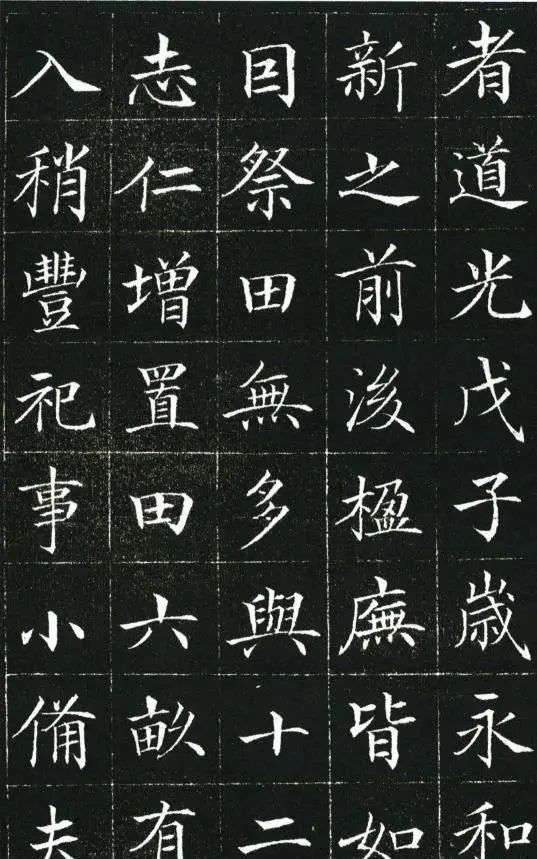 者道光戊子歲永和
新之前後楹廡皆如
囙祭田無多與十二
志仁增置田六畝有
入稍豐祀事小備夫